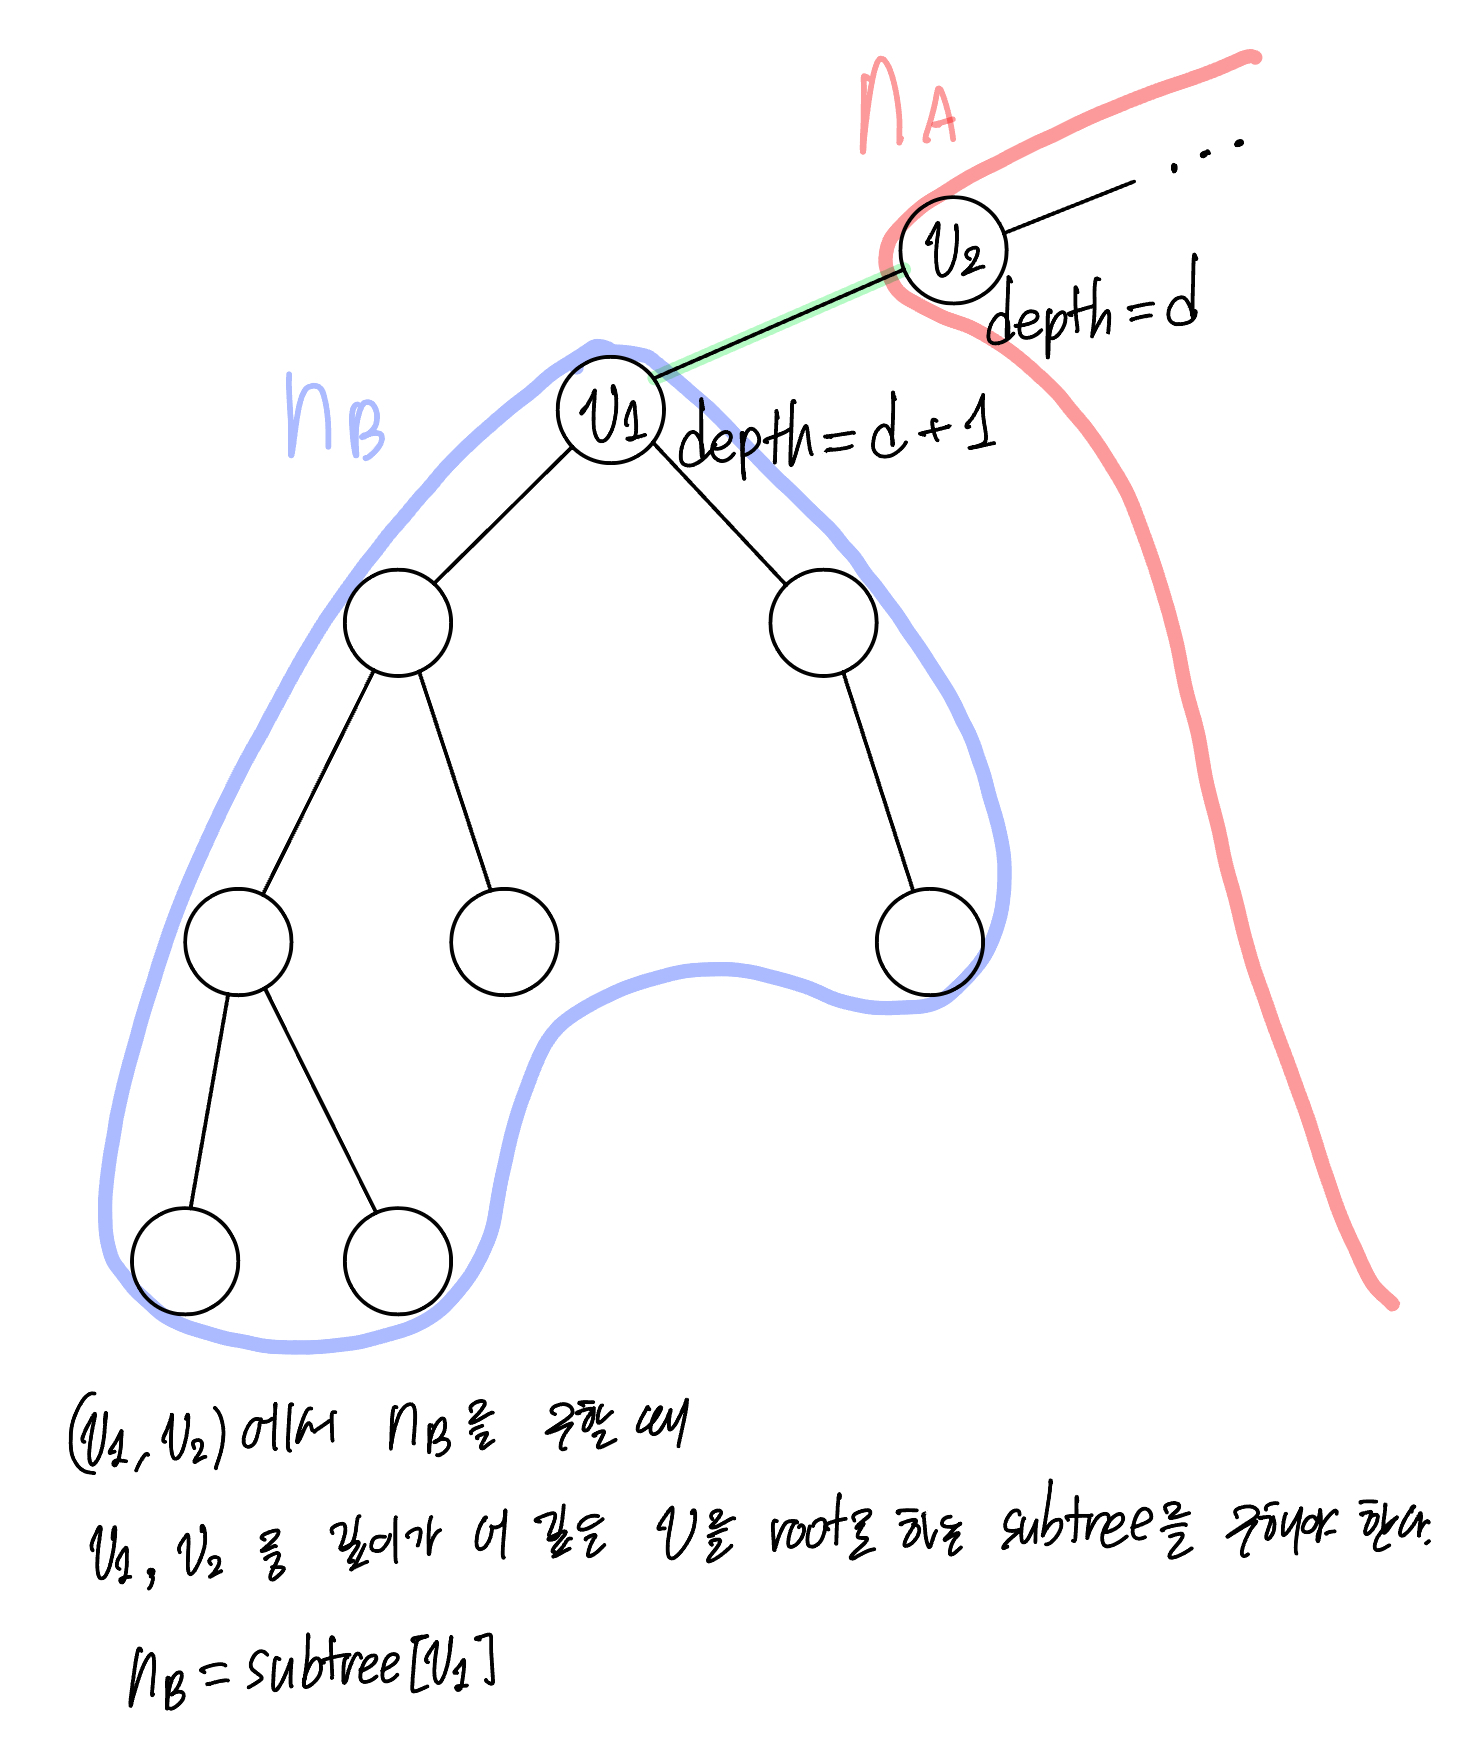 n_A
v_2
depth = d
n_B
v_1
depth = d + 1
(v_1, v_2)에서 n_B를 구할 때
v_1, v_2 중 깊이가 더 깊은 v를 root로 하는 subtree를 구해야 한다.
n_B = subtree[v_1]